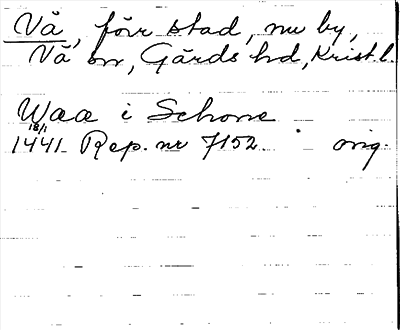 Vä, förr stad, nu by,
Vä sn, Gärds hd, Krist. l.
Waa i Schone
18/1
1441 Rep. nr 7152. orig.